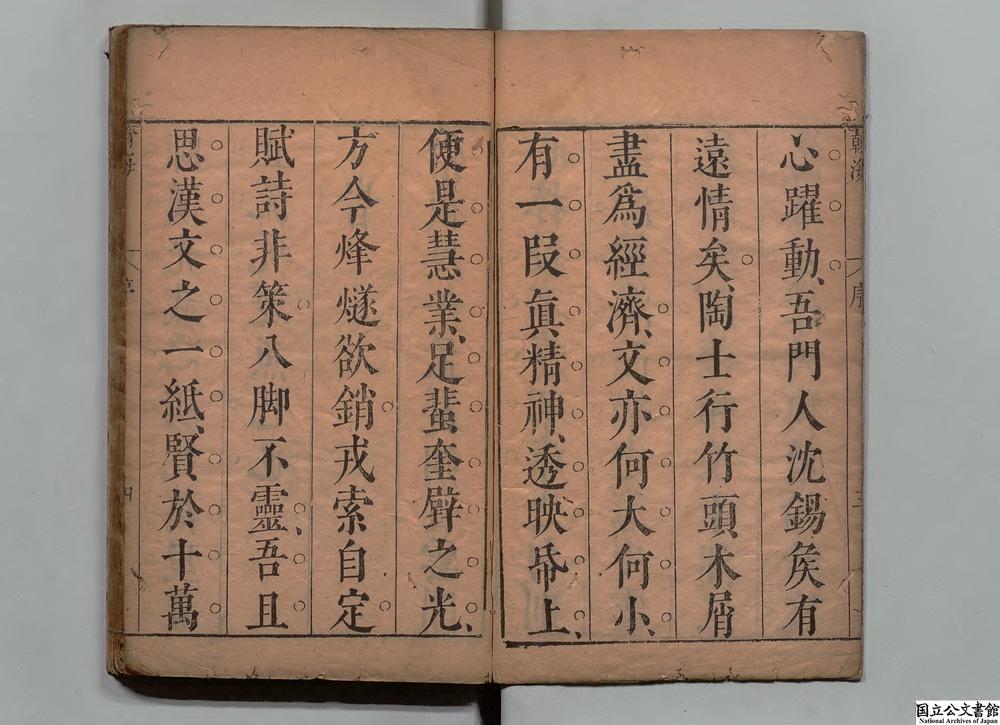 心躍動、吾門人沈錫矦有
遠情矣、陶士行竹頭木屑
盡爲經濟、文亦何大何小、
有一段眞精神、透映帋上、
便是慧業、足蜚奎壁之光、
方今烽燧欲銷戎索自定
賦詩非策八脚不靈、吾且
思漢文之一紙、賢於十萬
序
国立公文書館
National Archives of Japan